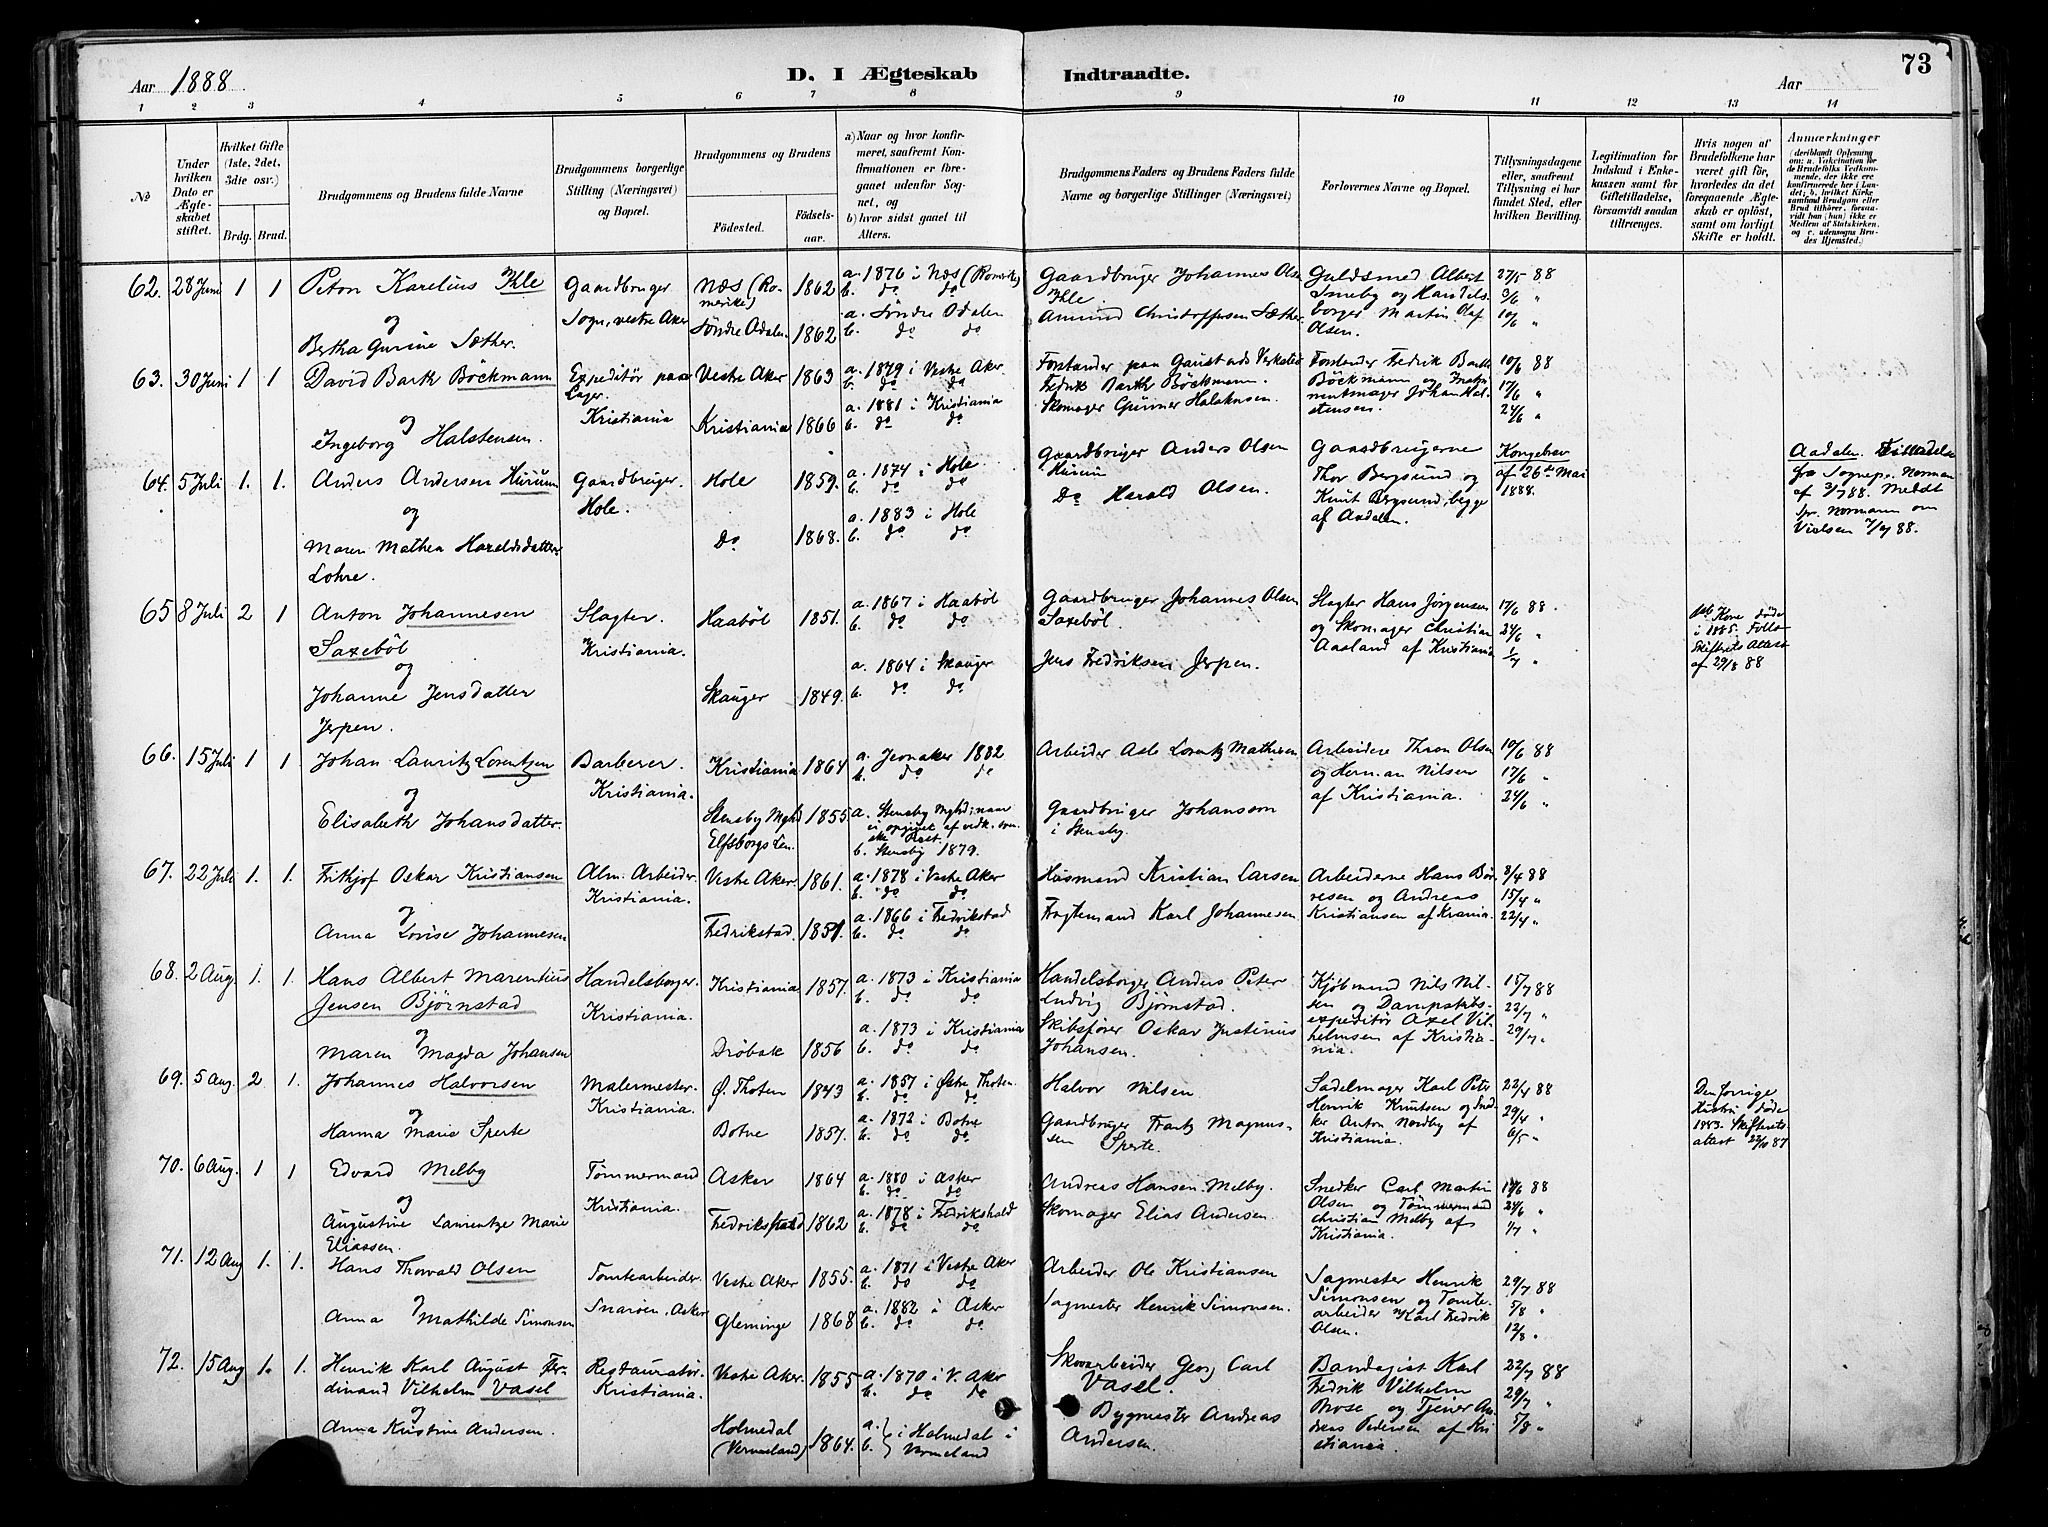 Aar 1888. D. I Ægteskab Indtraadte. Aar 73
1 2 3 4 5 6 7 8 9 10 11 12 13 14
No
Under hvilken Dato er Ægteskabet stiftet.
Hvilket Gifte (1ste, 2det, 3die osv.)
Brdg. Brud.
Brudgommens og Brudens fulde Navne
Brudgommens borgerlige Stilling (Næringsvei) og Bopæl.
Brudgommens og Brudens
Födested. Födsels-aar.
a) Naar og hvor konfirmeret, saafremt Konfirmationen er foregaaet udenfor Sognet, og
b) hvor sidst gaaet til Alters.
Brudgommens Faders og Brudens Faders fulde Navne og borgerlige Stillinger (Næringsvei)
Forlovernes Navne og Bopæl.
Tillysningsdagene eller, saafremt Tillysning ei har fundet Sted, efter hvilken Bevilling.
Legitimation for Indskud i Enkekassen samt for Giftetilladelse, forsaavidt saadan tiltrænges.
Hvis nogen af Brudefolkene har været gift før, hvorledes da det foregaaende Ægteskab er opløst, samt om lovligt Skifte er holdt.
Anmærkninger (deriblandt Oplysning om: a. Vakcination for de Brudefolks Vedkommende, der ikke ere konfirmerede her i Landet; b. hvilket Kirkesamfund Brudgom eller Brud tilhører, forsaavidt han (hun) ikke er Medlem af Statskirken, og c. udensogns Brudes Hjemsted.)
62. 28 Juni 1 1 Peton Karelius Ihle og Bertha Gurine Sæther.
Gaardbruger Sogn, vestre Aker
Næs (Romerike) 1862
Söndre Odalen 1862
a. 1876 i Næs (Romerike)
b. do do
a. Söndre Odalen
b. do do
Gaardbruger Johannes Olsen Ihle.
Amund Christoffersen Sæther
Guldsmed Albert Smeby og Handelsborger Martin Olaf Olsen.
27/5 88
3/6 "
10/6 "
63. 30 Juni 1 1 David Barth Böckmann og Ingeborg Halstensen.
Expeditör paa Lager. Kristiania
Vestre Aker 1863
Kristiania 1866
a. 1879 i Vestre Aker
b. do do
a. 1881 i Kristiania
b. do do
Forstander paa Gaustads Verksted Fredrik Barth Böckmann.
Skomager Gunner Halstensen.
Forstander Fredrik Barth Böckmann og Instrumentmager Johan Halstensen.
10/6 88
17/6 "
24/6 "
64. 5 Juli 1. 1. Anders Andersen Hurum og Maren Mathea Haraldsdatter Lohre.
Gaardbruger. Hole.
Hole 1859.
Do 1868.
a. 1874 i Hole.
b. do do
a. 1883 i Hole
b. do do
Gaardbruger Anders Olsen Hurum
Do Harald Olsen.
Gaardbrugerne Thor Bergsund og Knut Bergsund, begge af Aadalen.
Kongebrev af 26de Mai 1888.
Aadalen. Tilladelse fra Sognepr. Normann af 3/7 88. Meddt Spr. Normann om Vielsen 7/7 88.
65 8 Juli 2 1 Anton Johannesen Saxeböl og Johanne Jensdatter Jerpen.
Slagter. Kristiania.
Haaböl 1851.
Skauger 1849.
a. 1867 i Haaböl
b. do do
a. 1864 i Skauger
b. do do
Gaardbruger Johannes Olsen Saxeböl.
Jens Fredriksen Jerpen.
Slagter Hans Jörgensen og Skomager Christian Aasland af Kristiania
17/6 88.
24/6 "
1/7 "
Kone döde i 1885. Follo Skifterets Attest af 29/8 88
66. 15 Juli 1 1 Johan Lauritz Lorentzen og Elisabeth Johansdatter.
Barberer. Kristiania.
Kristiania 1864
Stensby Mghd Elfsborgs Len. 1855
a. Jevnaker 1882
b. do do
a. Stensby Mghd; naar ei opgivet af vedk. svenske Præst.
b. Stensby 1879.
Arbeider Asle Lorentz Mathisen
Gaardbruger Johansson i Stensby.
Arbeidere Thron Olsen og Herman Nilsen af Kristiania.
10/6 88
17/6 "
24/6 "
67. 22 Juli 1. 1. Frithjof Oskar Kristiansen og Anna Lovise Johannesen
Alm. Arbeider. Kristiania.
Vestre Aker 1861.
Fredrikstad. 1851.
a. 1878 i Vestre Aker
b. do do
a. 1866 i Fredrikstad
b. do do
Husmand Kristian Larsen
Fragtemand Karl Johannesen.
Arbeiderne Hans Börresen og Andreas Kristiansen af Krania.
8/4 88
15/4 "
22/4 "
68. 2 Aug. 1. 1. Hans Albert Marentius Jensen Bjørnstad og Maren Magda Johansen
Handelsborger. Kristiania.
Kristiania 1857.
Dröbak 1856
a. 1873 i Kristiania
b. do do
a. 1873 i Kristiania
b. do do
Handelsborger Anders Peter Ludvig Bjørnstad.
Skibsfører Oskar Justinius Johansen.
Kjöbmand Nils Nilsen og Dampskibsexpeditör Axel Vilhelmsen af Kristiania.
15/7 88
22/7 "
29/7 "
69. 5 Aug. 2. 1. Johannes Halvorsen og Hanna Marie Sperte
Malermester. Kristiania.
Ø. Thoten 1843
Botne 1857.
a. 1857 i Østre Thoten.
b. do do
a. 1872 i Botne
b. do do
Halvor Nilsen.
Gaardbruger Frantz Magnussen Sperte.
Sadelmager Karl Peter Henrik Knutsen og Snedker Anton Nordby af Kristiania.
22/4 88
29/4 "
6/5 "
Den forrige Hustru døde 1883. Skifterets attest 22/10 87
70. 6 Aug. 1 1 Edvard Melby og Augustine Laurentze Marie Eliassen.
Tømmermand Kristiania.
Asker 1864
Fredrikshald 1862
a. 1880 i Asker
b. do do
a. 1878 i Fredrikshald
b. do do
Andreas Hansen Melby.
Skomager Elias Andersen.
Snedker Carl Martin Olsen og Tømmermand Christian Melby af Kristiania.
17/6 88
24/6 "
1/7 "
71. 12 Aug 1. 1. Hans Thorvald Olsen og Anna Mathilde Simonsen
Tomtearbeider. Snarøen, Asker
Vestre Aker 1855.
Gleminge 1868
a. 1871 i Vestre Aker
b. do do
a. 1882 i Asker
b. do do
Arbeider Ole Kristiansen
Sagmester Henrik Simonsen.
Sagmester Henrik Simonsen og Tomtearbeider Karl Fredrik Olsen.
29/7 88
5/8 "
12/8 "
72. 15 Aug 1. 1. Henrik Karl August Ferdinand Vilhelm Vasel og Anna Kristine Andersen.
Restauratör. Kristiania.
Vestre Aker. 1855
Holmedal (Vermeland) 1864.
a. 1870 i V. Aker
b. do do
a. b. } i Holmedal i Vermeland
Skovarbeider Georg Carl Vasel.
Bygmester Andreas Andersen.
Bandagist Karl Fredrik Vilhelm Brose og Tjener Andreas Pedersen af Kristiania.
22/7 88
29/7 "
5/8 "